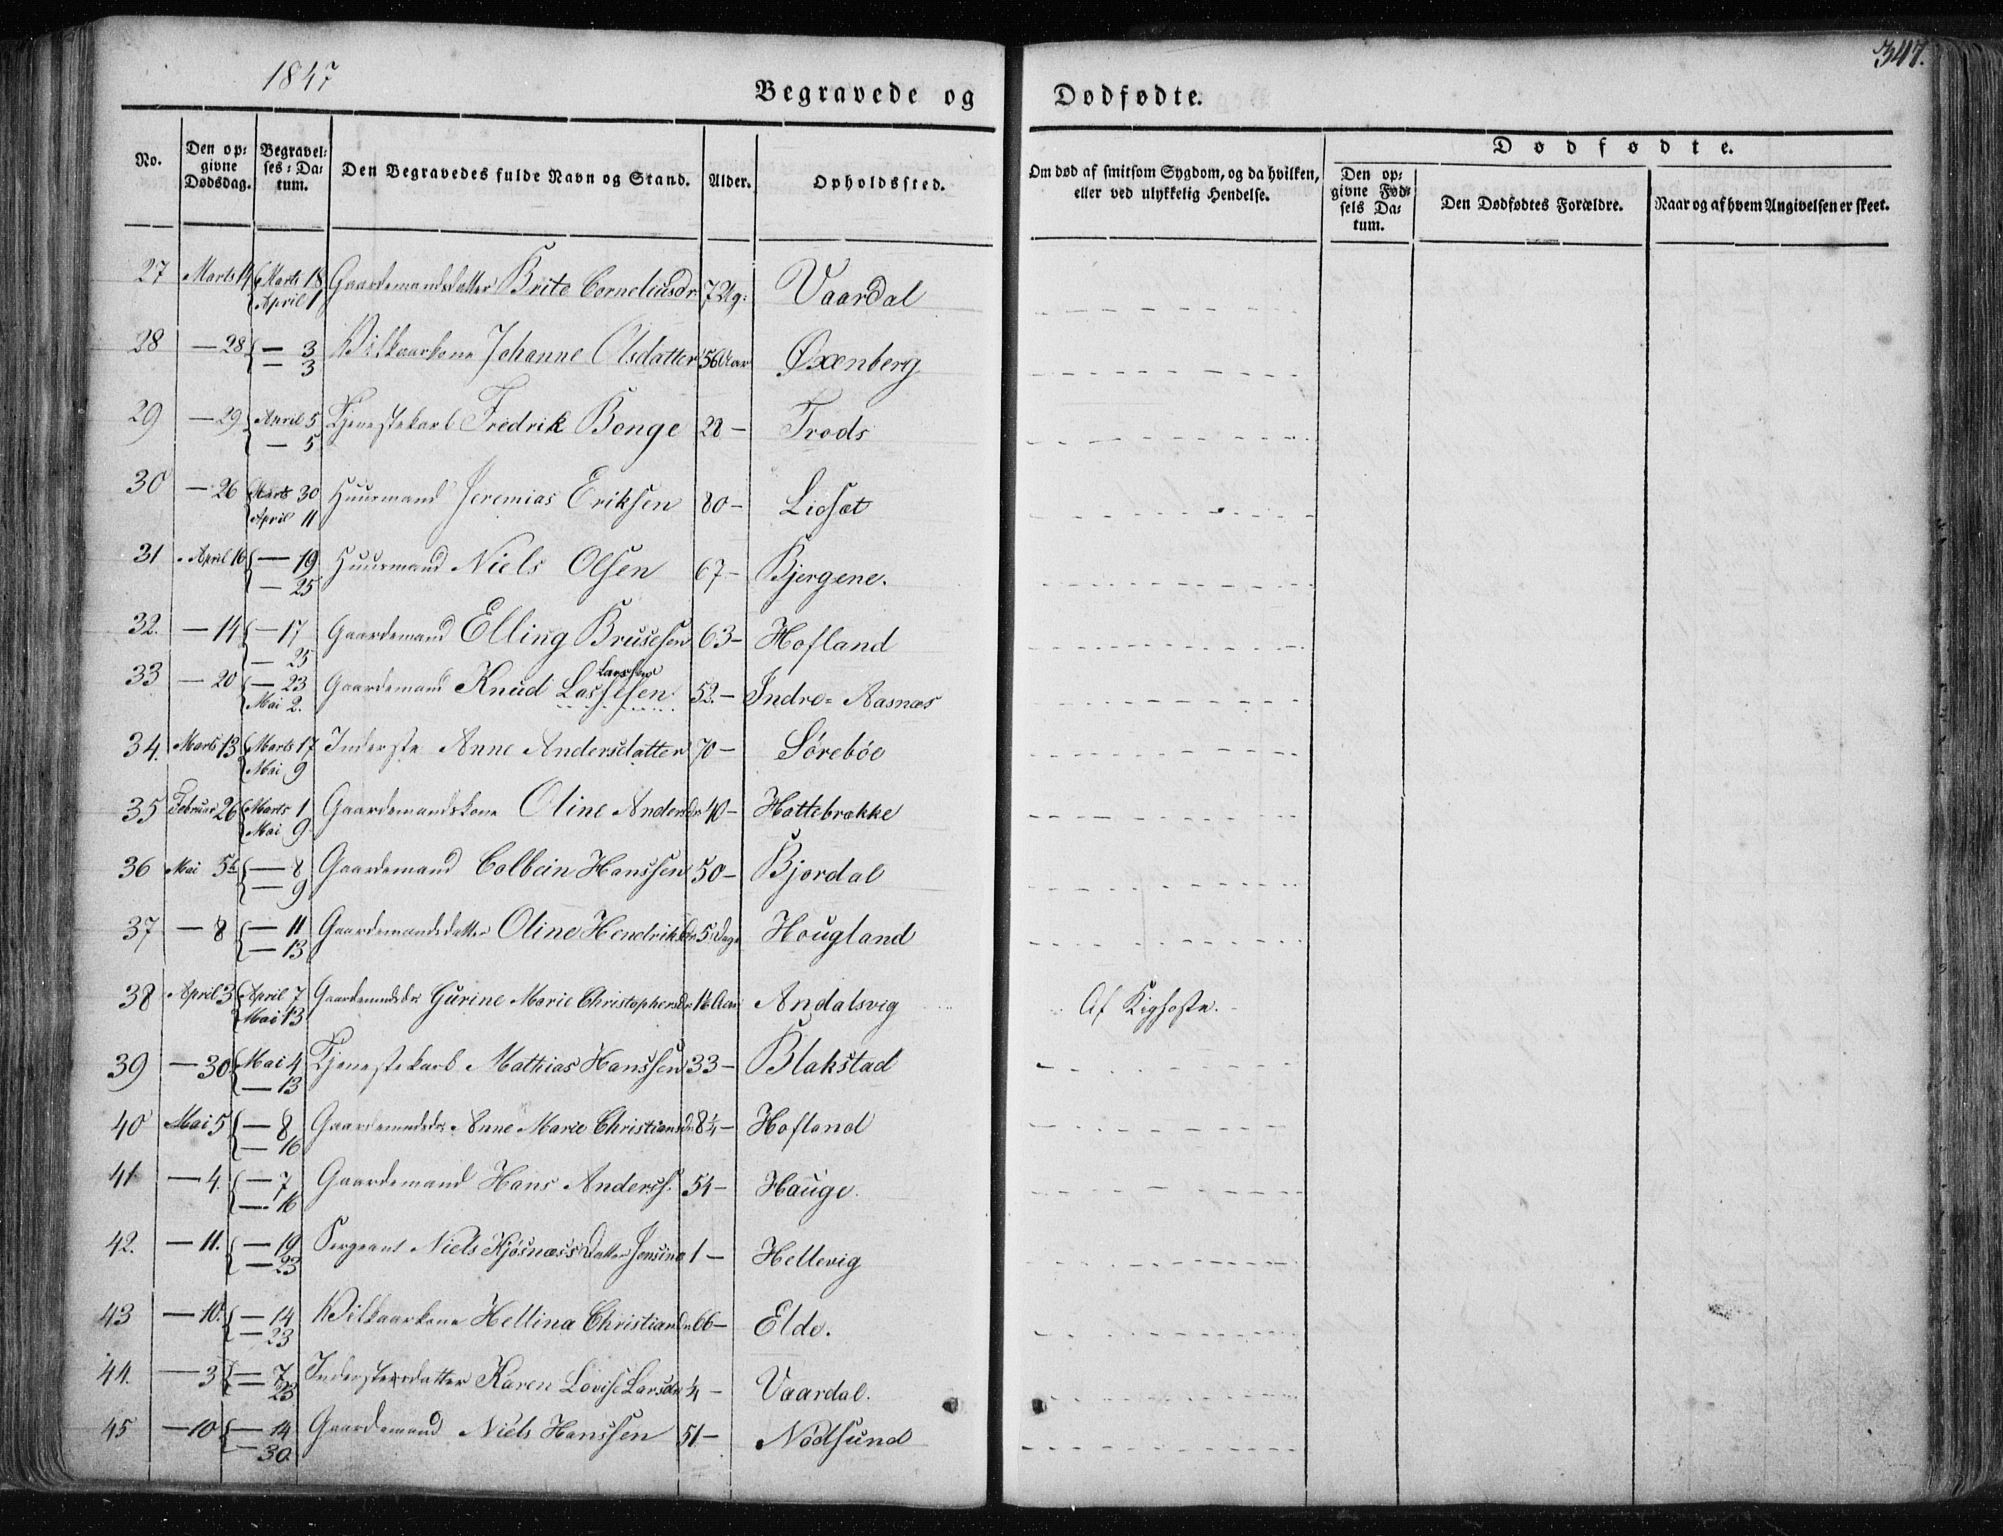 1847
347.
Begravede og Dødfødte.
No.
Den op=
givne
Dødsdag.
Begravel=
ses=Da=
tum.
Den Begravedes fulde Navn og Stand.
Alder.
Opholdssted.
Om død af smitsom Sygdom, og da hvilken,
eller ved ulykkelig Hendelse.
Dødfødte.
Den op=
givne Fød=
sels Da=
tum.
Den Dødfødtes Forældre.
Naar og af hvem Angivelsen er skeet.
27 Marts 14 Marts 18 Gaardemandsdatter Brite Corneliusdr 7 Ug: Vaardal
April 1
28 — 28 — 3 Vilkaarkone Johanne Olsdatter 56 Aar Øxenberg
— 3
29 — 29 April 5 Tjenestekarl Fredrik Bonge 28 — Trods
— 5
30 — 26 Marts 30 Huusmand Jeremias Eriksen 80 — Lidsæt
April 11
31 April 16 — 19 Huusmand Niels Olsen 67 — Bjergene.
— 25
32. — 14 — 17 Gaardemand Elling Brusesen 63 — Hofland
— 25
Larssen
33 — 20 — 23 Gaardemand Knud Lassesen 52. — Indre=Aasnæs
Mai 2.
34. Marts 13 Marts 17 Inderste Anne Andersdatter 70 — Sørebøe
Mai 9
35 Februar 26 Marts 1 Gaardemandskone Oline Andersdr 40 — Hattebrække
Mai 9
36 Mai 5te — 8 Gaardemand Colbein Hanssen 50 — Bjordal
— 9
37 — 8 — 11 Gaardemandsdatter Oline Hendriksdr 5 Dage Hougland
— 13
38 April 3 April 7 Gaardmandsdr Gurine Marie Christophersdr Aar Andalsvig Af Kighoste.
Mai 13
39 — 30 Mai 4 Tjenestekarl Mathias Hanssen 33 — Blakstad
— 13
40 Mai 5 — 8 Gaardemandsdr Anne Marie Christiansdr 8¼ — Hofland
— 16
41 — 4. — 7 Gaardemand Hans Anderss. 54 — Hauge.
— 16
42. — 11. — 19 Sergeant Niels Kjøsnæss Datter Jensine 1 — Hellevig
— 23
43 — 10. — 14 Vilkaarkone Hellina Christiansdr 66 — Elde.
— 23
44. — 3 — 7 Inderstersdatter Karen Lovise Larsdr ¼ — Vaardal.
— 23
45 — 10 — 14 Gaardemand Niels Hanssen 51 — Nødsund
— 30